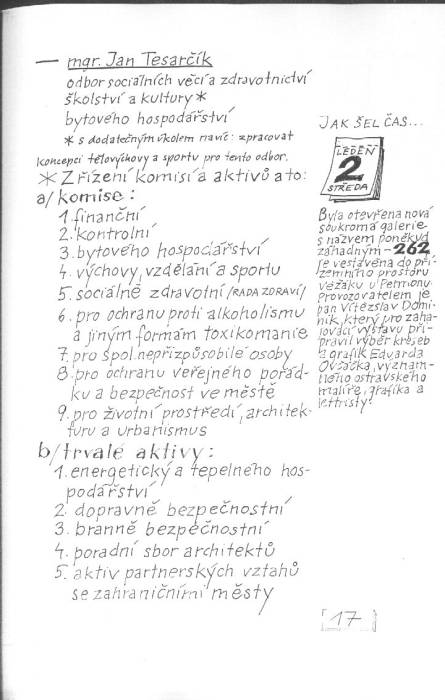 — mgr. Jan Tesarčík
odbor sociálních věcí a zdravotnictví
školství a kultury *
bytového hospodářství
* s dodatečným úkolem navíc: zpracovat
koncepci tělovýchovy a sportu pro tento odbor.
* Zřízení komisí a aktivů a to:
a/ komise:
1. finanční
2. kontrolní
3. bytového hospodářství
4. výchovy, vzdělání a sportu
5. sociálně zdravotní /RADA ZDRAVÍ/
6. pro ochranu proti alkoholismu
a jiným formám toxikomanie
7. pro spol. nepřizpůsobilé osoby
8. pro ochranu veřejného pořád-
ku a bezpečnost ve městě
9. pro životní prostředí, architek-
turu a urbanismus
b/ trvalé aktivy:
1. energetický a tepelného hos-
podářství
2. dopravně bezpečnostní
3. branně bezpečnostní
4. poradní sbor architektů
5. aktiv partnerských vztahů
se zahraničními městy
JAK ŠEL ČAS...
LEDEN
2
STŘEDA
Byla otevřena nová
soukromá galerie
s názvem poněkud
záhadným - 262
Je vestavěna do pří-
zemního prostoru
věžáku u Permonu,
provozovatelem je
pan Vítězslav Domi-
ník, který pro zaha-
jovací výstavu při-
pravil výběr kreseb
a grafik Eduarda
Ovčáčka, význam-
ného ostravského
malíře, grafika a
lettristy.
[17]